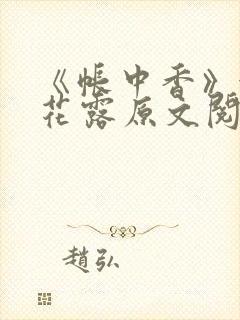 《帐中香》
花露原文阅
趙弘